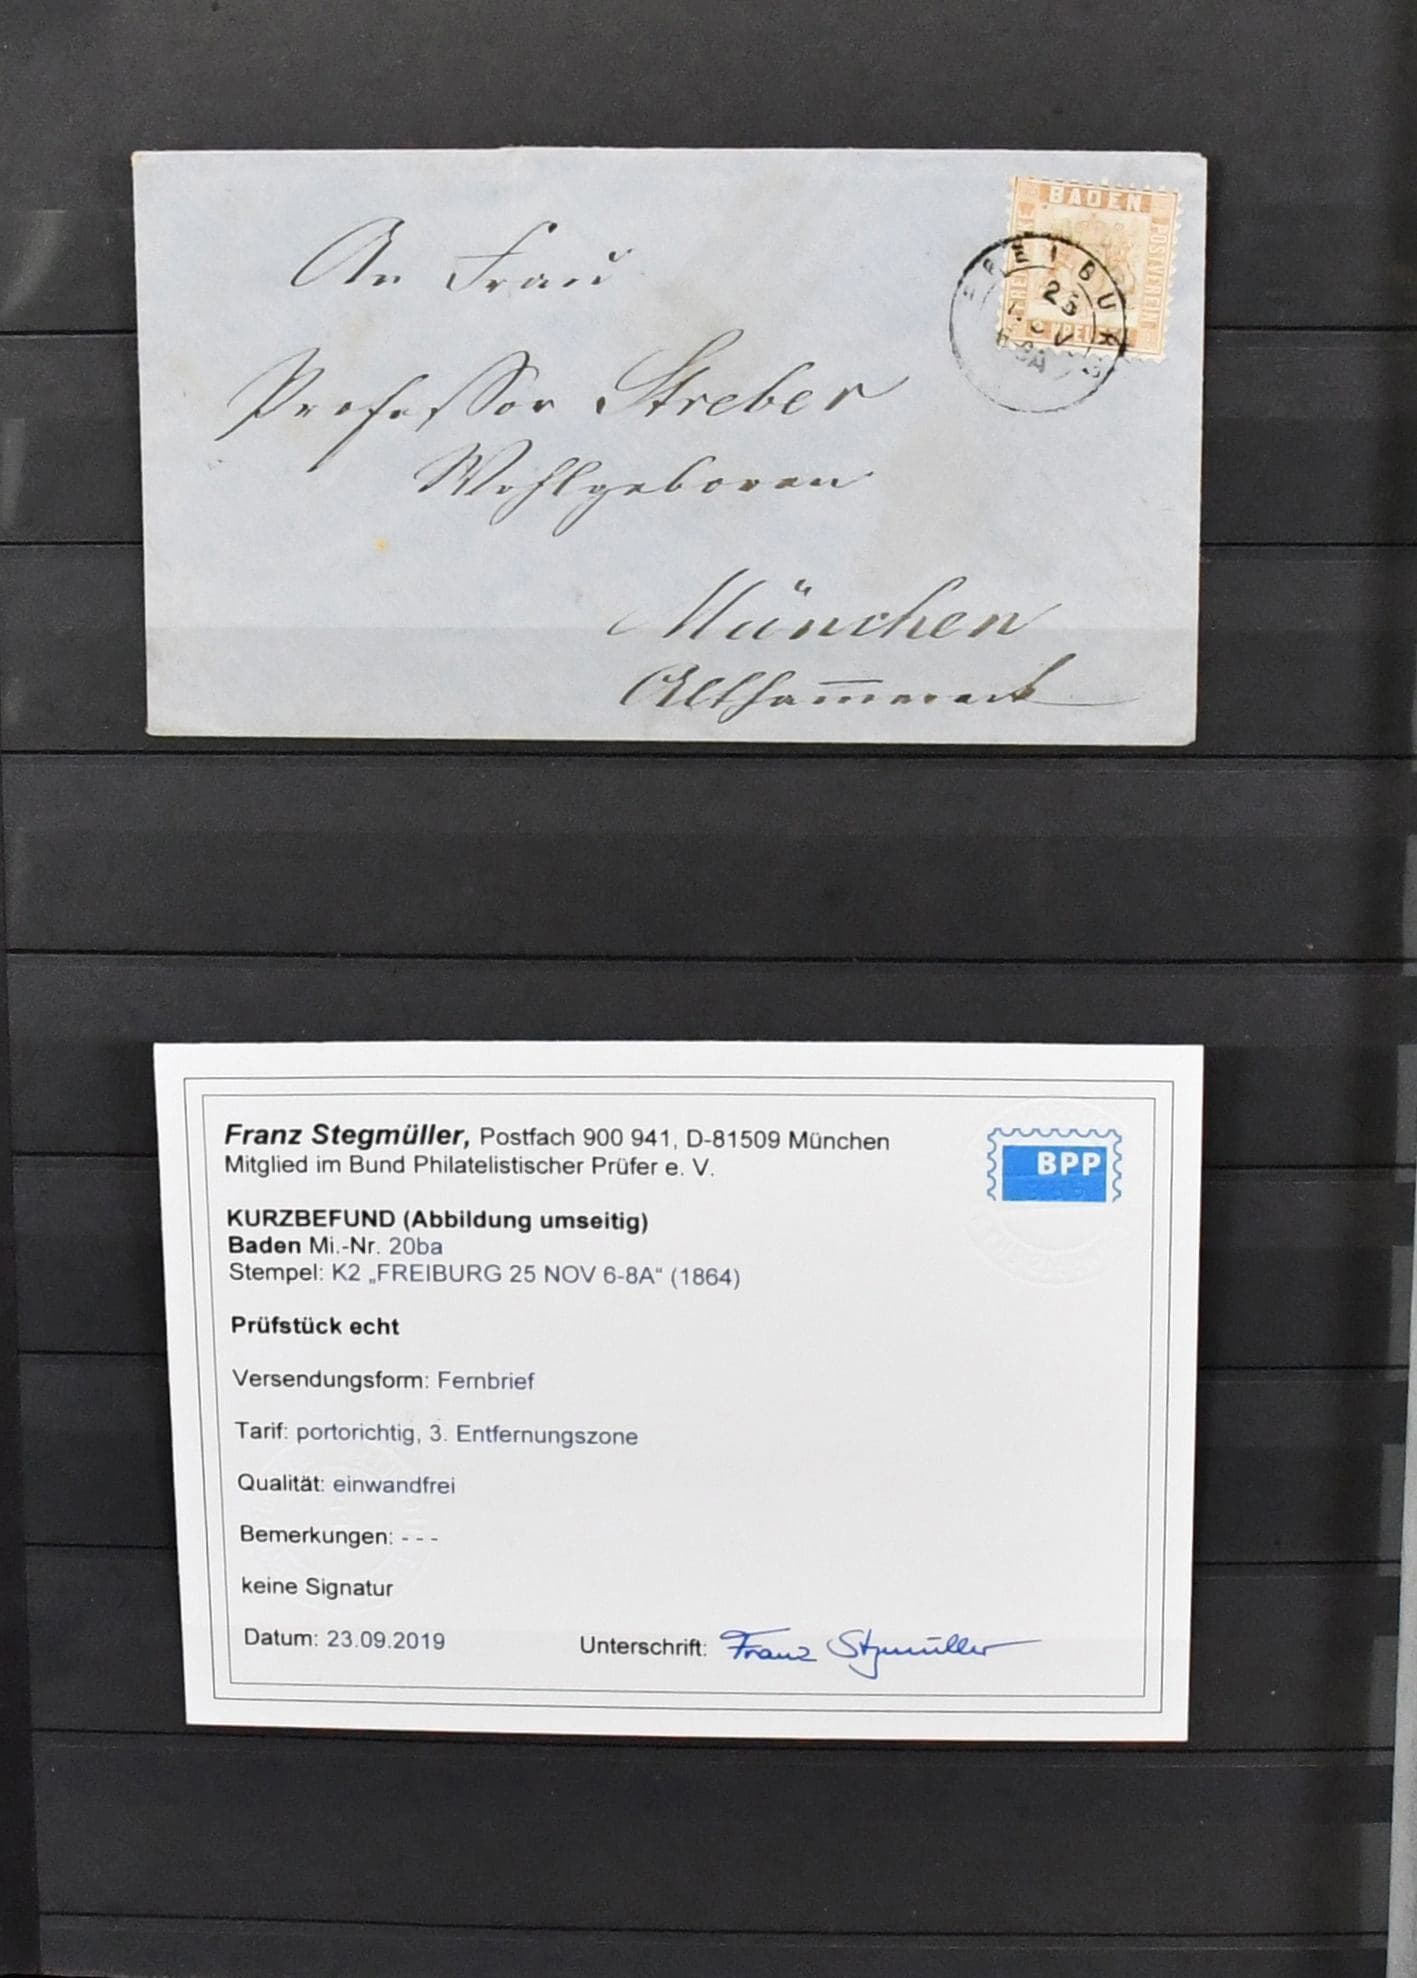 An Frau
Professor Streber
Wohlgeboren
München
BADEN
POSTVEREIN
FREIBURG
25
NOV
Franz Stegmüller, Postfach 900 941, D-81509 München
Mitglied im Bund Philatelistischer Prüfer e. V.
BPP
KURZBEFUND (Abbildung umseitig)
Baden Mi.-Nr. 20ba
Stempel: K2 „FREIBURG 25 NOV 6-8A“ (1864)
Prüfstück echt
Versendungsform: Fernbrief
Tarif: portorichtig, 3. Entfernungszone
Qualität: einwandfrei
Bemerkungen: - - -
keine Signatur
Datum: 23.09.2019
Unterschrift: Franz Stegmüller